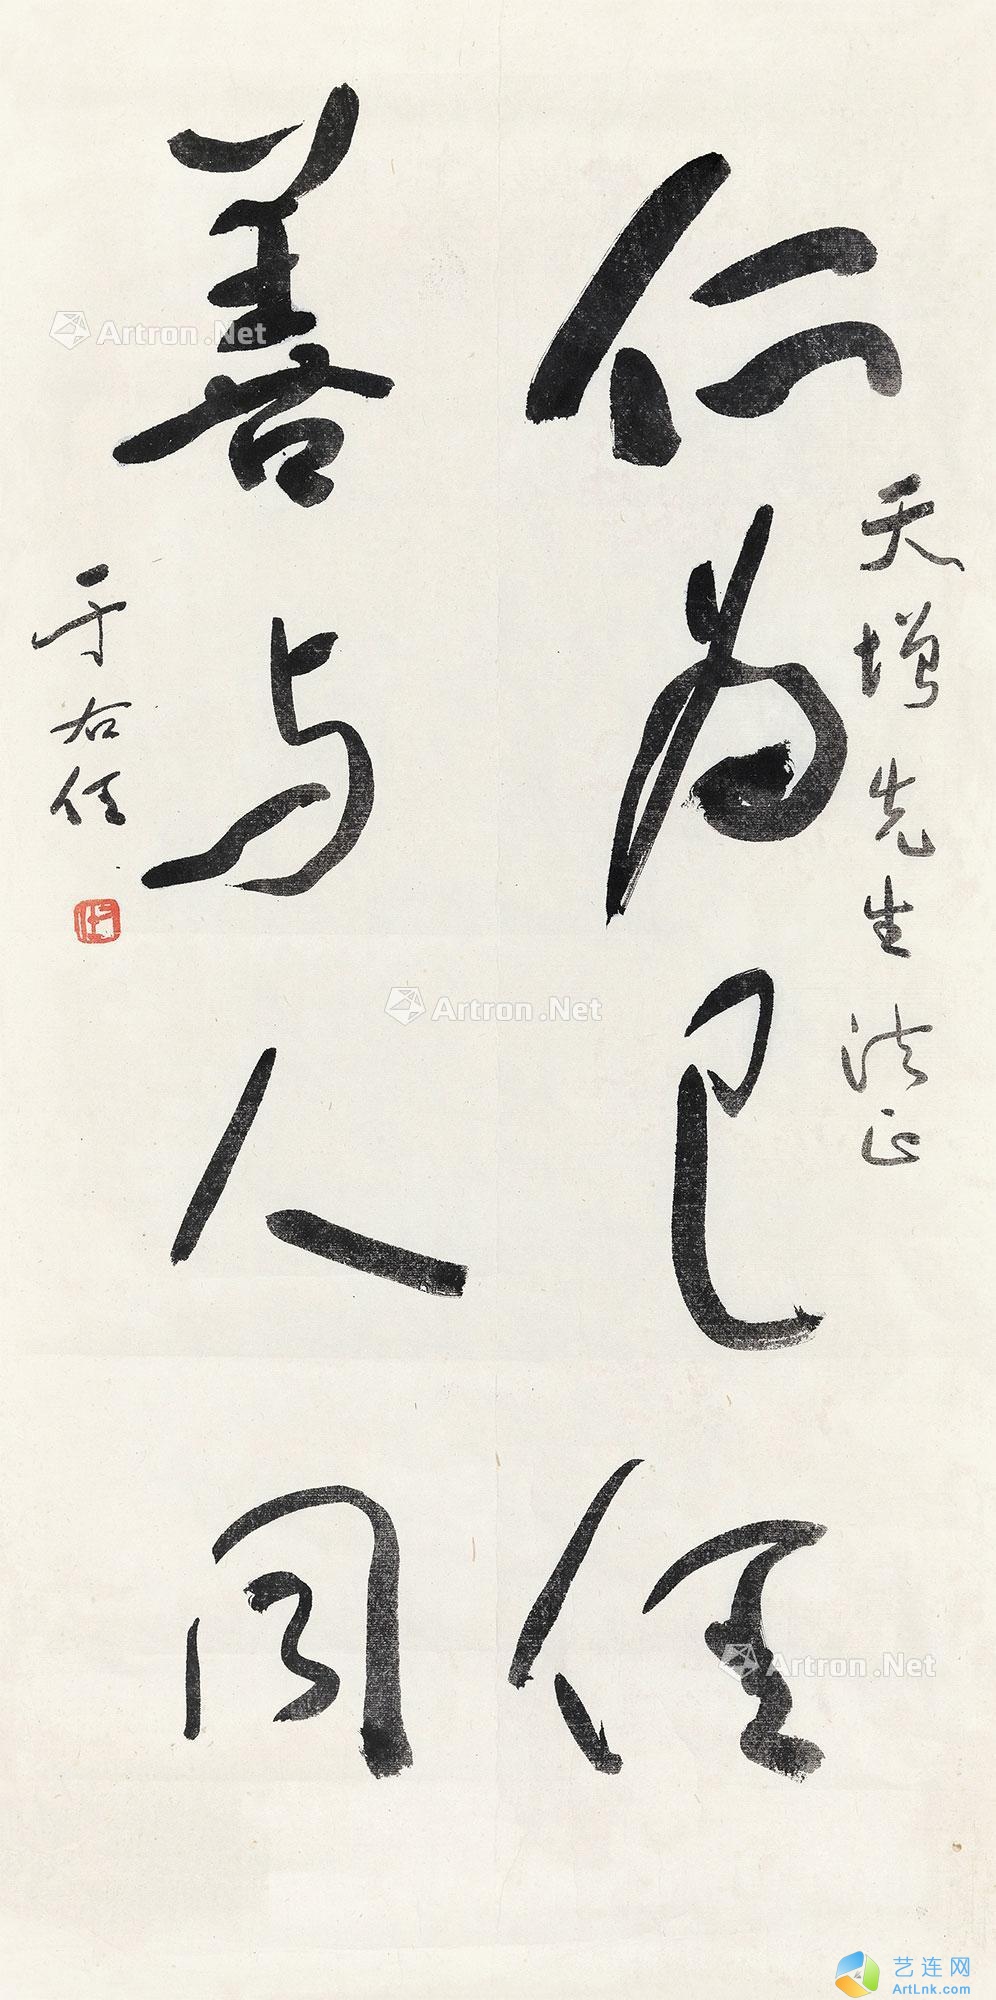 天增先生法正
仁为己任
善与人同
于右任
Artron.Net
Artron.Net
Artron.Net
艺连网
ArtLnk.com